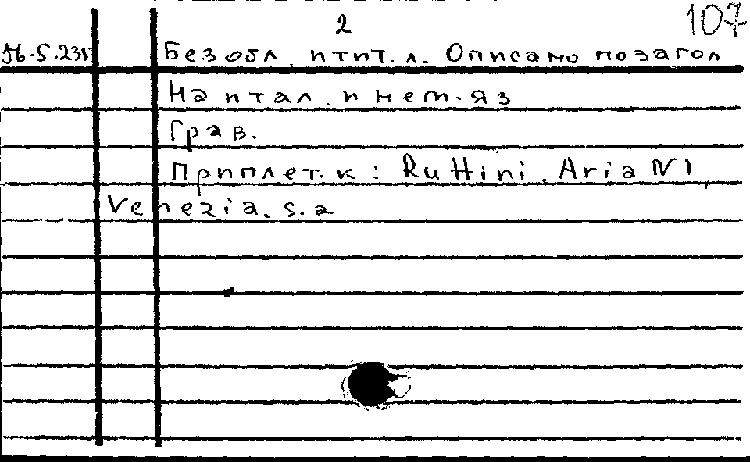 2
107
Без обл. и тит. л. Описано по загол
На итал. и нем. яз
Грав.
Приплет. к: Ruffini. Aria N1,
Venezia. s. a